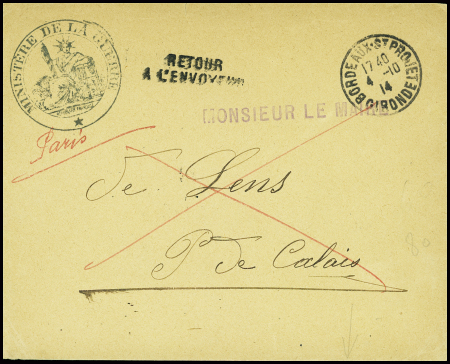 MINISTÈRE DE LA GUERRE
RETOUR
A L'ENVOYEUR
BORDEAUX-ST PROJET
17 40
4 -10
14
GIRONDE
MONSIEUR LE MAIRE
Paris
de Lens
P. de Calais
80